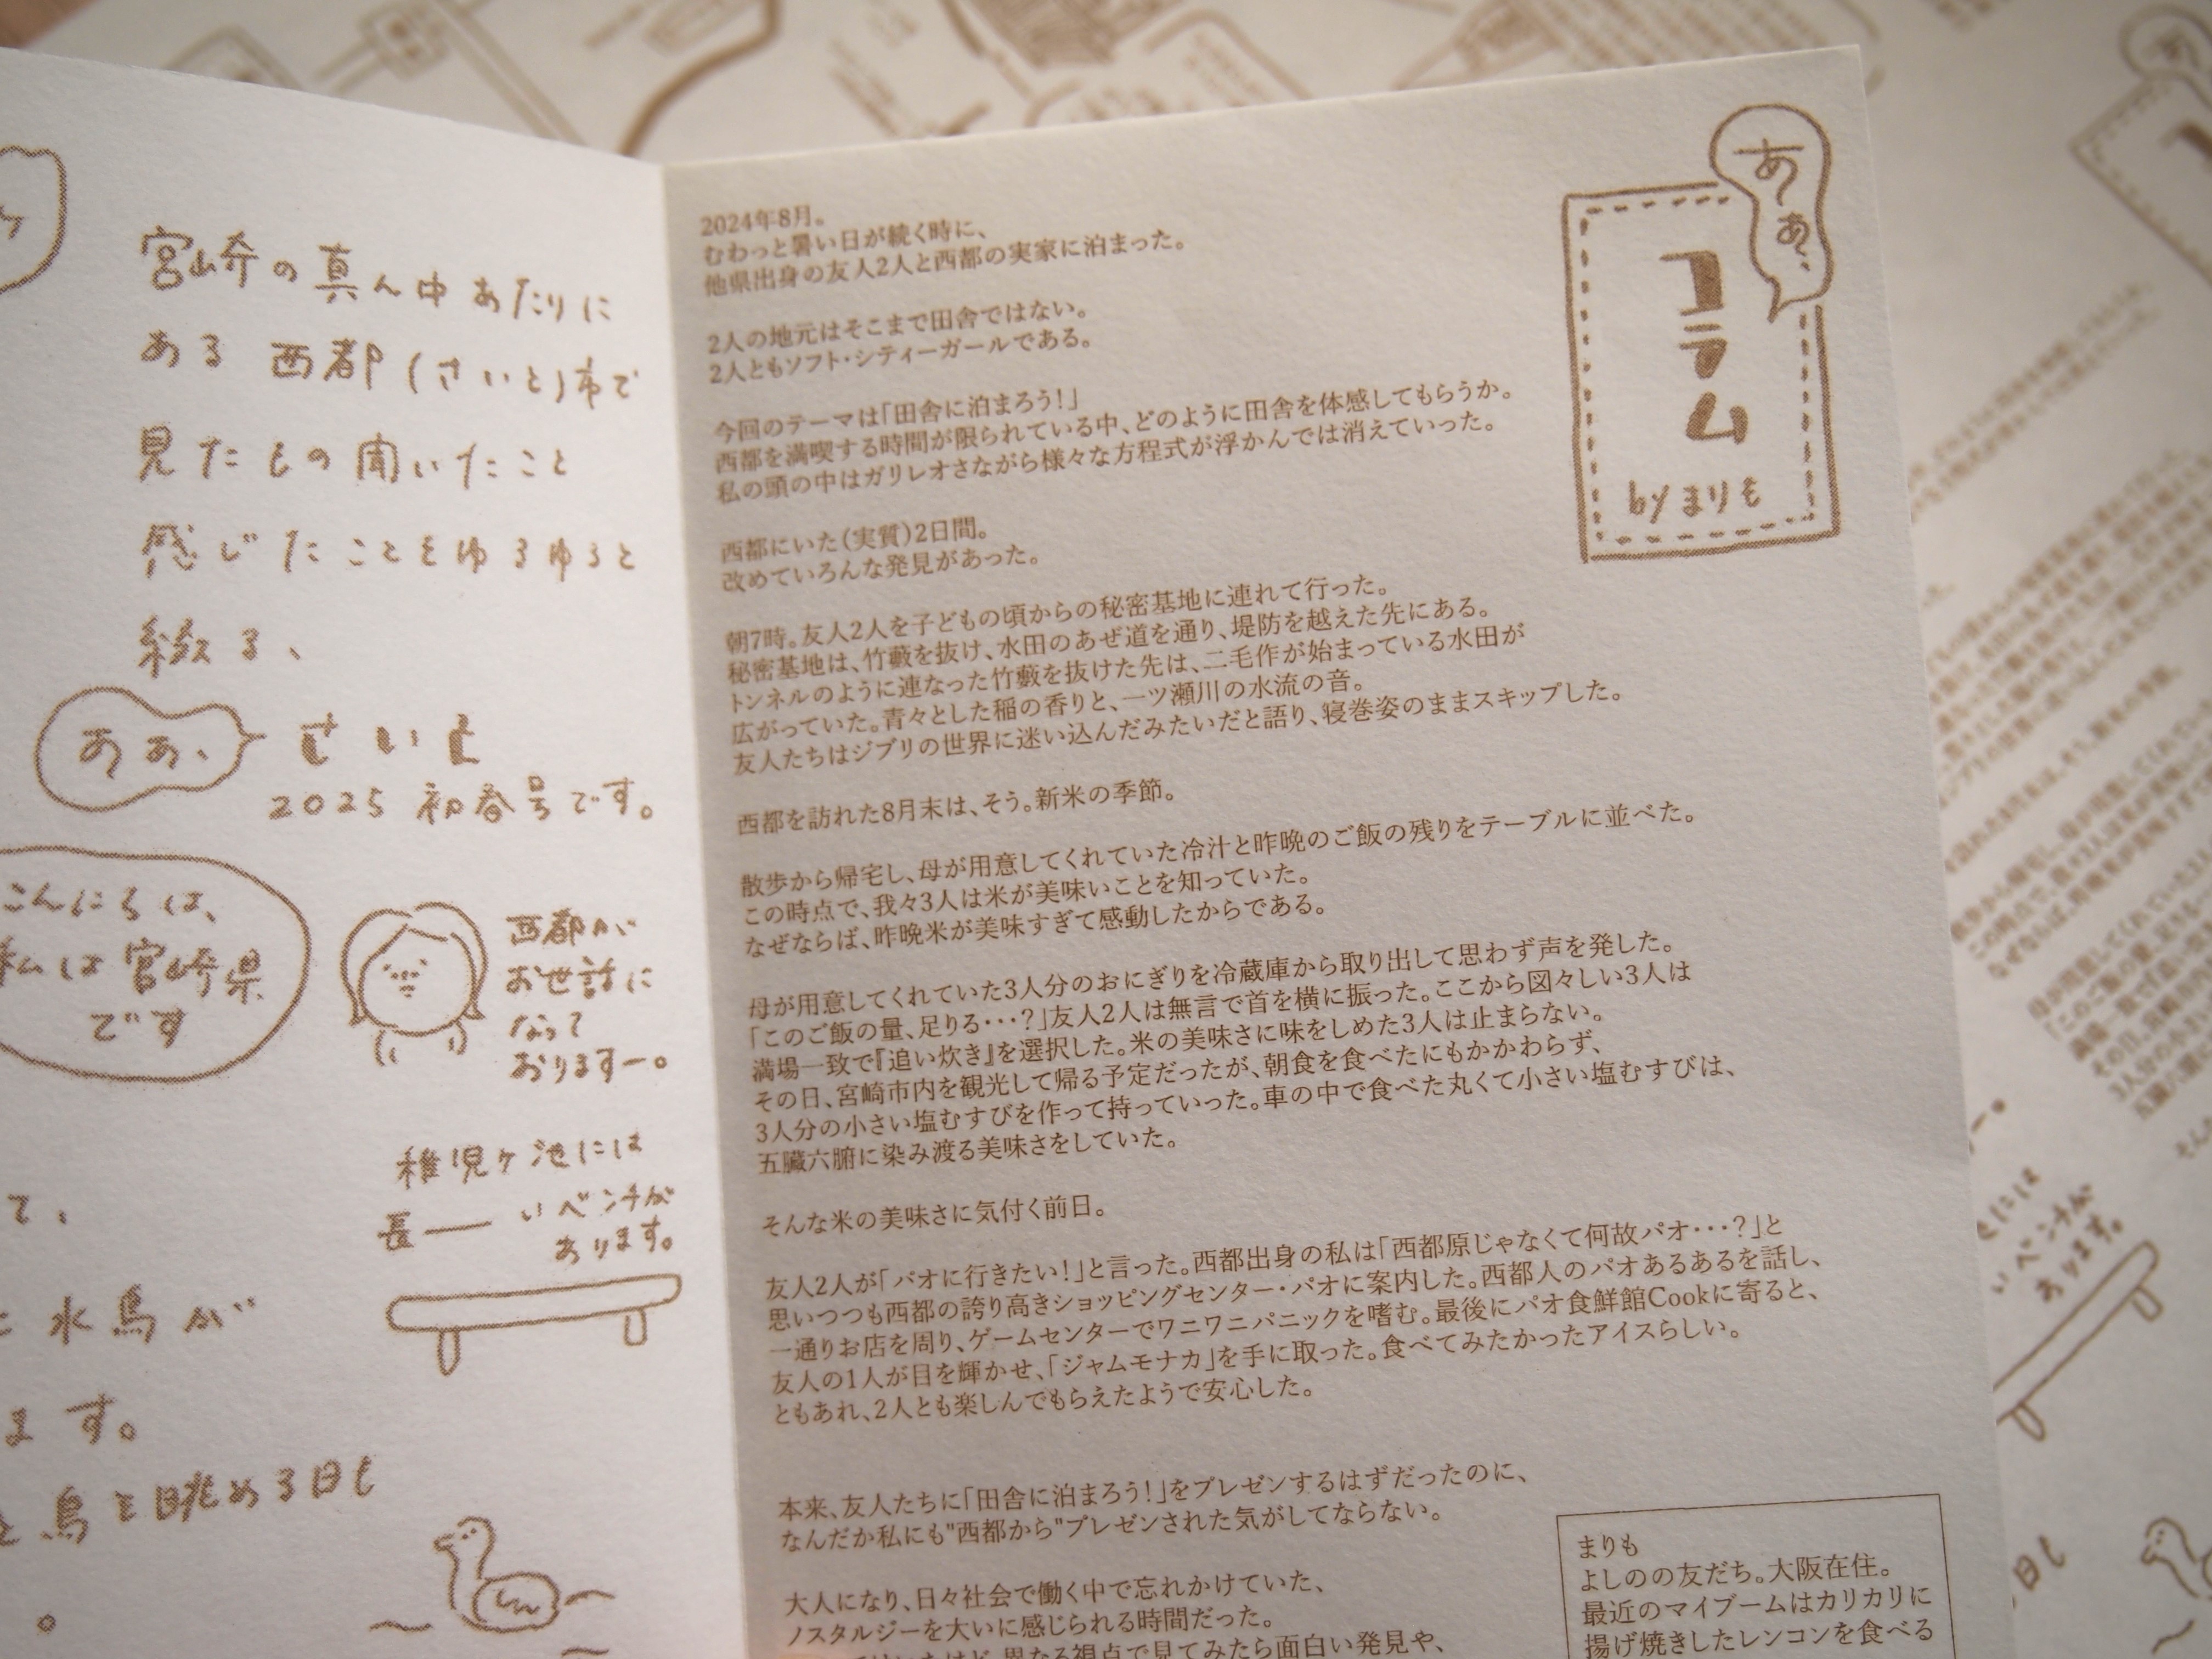 宮崎の真ん中あたりに
ある西都(さいと)市で
見たもの聞いたこと
感じたことをゆるゆると
綴る、
ああ、さいと
2025 初春号です。
こんにちは、
私は宮崎県
です
西都が
お世話に
なって
おりますー。
稚児ヶ池には
長——いベンチが
あります。
て、
水鳥が
ます。
鳥を眺める日も
。
ああ、
コラム
byまりも
2024年8月。
むわっと暑い日が続く時に、
他県出身の友人2人と西都の実家に泊まった。
2人の地元はそこまで田舎ではない。
2人ともソフト・シティーガールである。
今回のテーマは「田舎に泊まろう!」
西都を満喫する時間が限られている中、どのように田舎を体感してもらうか。
私の頭の中はガリレオさながら様々な方程式が浮かんでは消えていった。
西都にいた(実質)2日間。
改めていろんな発見があった。
朝7時。友人2人を子どもの頃からの秘密基地に連れて行った。
秘密基地は、竹藪を抜け、水田のあぜ道を通り、堤防を越えた先にある。
トンネルのように連なった竹藪を抜けた先は、二毛作が始まっている水田が
広がっていた。青々とした稲の香りと、一ツ瀬川の水流の音。
友人たちはジブリの世界に迷い込んだみたいだと語り、寝巻姿のままスキップした。
西都を訪れた8月末は、そう。新米の季節。
散歩から帰宅し、母が用意してくれていた冷汁と昨晩のご飯の残りをテーブルに並べた。
この時点で、我々3人は米が美味いことを知っていた。
なぜならば、昨晩米が美味すぎて感動したからである。
母が用意してくれていた3人分のおにぎりを冷蔵庫から取り出して思わず声を発した。
「このご飯の量、足りる・・・?」友人2人は無言で首を横に振った。ここから図々しい3人は
満場一致で『追い炊き』を選択した。米の美味さに味をしめた3人は止まらない。
その日、宮崎市内を観光して帰る予定だったが、朝食を食べたにもかかわらず、
3人分の小さい塩むすびを作って持っていった。車の中で食べた丸くて小さい塩むすびは、
五臓六腑に染み渡る美味さをしていた。
そんな米の美味さに気付く前日。
友人2人が「パオに行きたい!」と言った。西都出身の私は「西都原じゃなくて何故パオ・・・?」と
思いつつも西都の誇り高きショッピングセンター・パオに案内した。西都人のパオあるあるを話し、
一通りお店を周り、ゲームセンターでワニワニパニックを嗜む。最後にパオ食鮮館Cookに寄ると、
友人の1人が目を輝かせ、「ジャムモナカ」を手に取った。食べてみたかったアイスらしい。
ともあれ、2人とも楽しんでもらえたようで安心した。
本来、友人たちに「田舎に泊まろう!」をプレゼンするはずだったのに、
なんだか私にも"西都から"プレゼンされた気がしてならない。
大人になり、日々社会で働く中で忘れかけていた、
ノスタルジーを大いに感じられる時間だった。
異なる視点で見てみたら面白い発見や、
まりも
よしのの友だち。大阪在住。
最近のマイブームはカリカリに
揚げ焼きしたレンコンを食べる